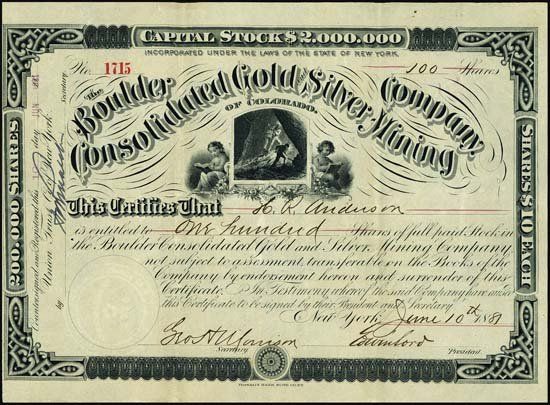 CAPITAL STOCK $2,000,000
INCORPORATED UNDER THE LAWS OF THE STATE OF NEW YORK.
No. 1715
100 Shares
The Boulder Consolidated Gold and Silver Mining Company
OF COLORADO.
This Certifies That H. R. Anderson
is entitled to One hundred Shares of full paid Stock in
the Boulder Consolidated Gold and Silver Mining Company,
not subject to assessment, transferable on the Books of the
Company by endorsement hereon and surrender of this
Certificate. In Testimony whereof the said Company have caused
this Certificate to be signed by their President and Secretary.
New York, June 10th 1881
Geo H Morrison
Secretary
President.
200,000 SHARES
SHARES $10 EACH
Countersigned and Registered this day
Union Trust Co. of New York
by
Secretary